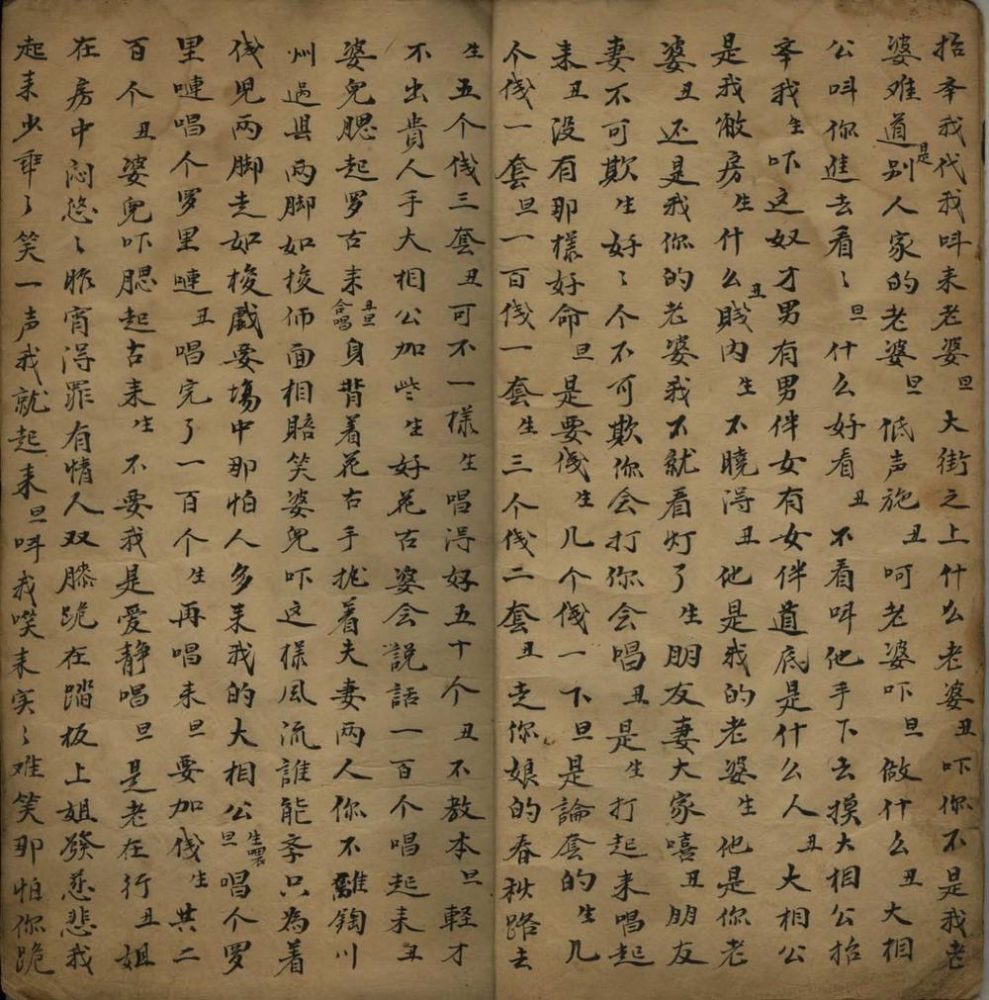 抬夅我代我呌来老婆旦大街之上什么老婆丑吓你不是我老
婆难道是别人家的老婆旦低声施丑呵老婆吓旦做什么丑大相
公呌你進去看〻旦什么好看丑不看呌他手下去摸大相公抬
夅我生吓这奴才男有男伴女有女伴道底是什么人丑大相公
是我敝房生什么丑賎内生不曉得丑他是我的老婆生他是你老
婆丑还是我你的老婆我不就看灯了生朋友妻大家嘻丑朋友
妻不可欺生好〻个不可欺你会打你会唱丑是生打起来唱起
来丑没有那樣好命旦是要伐生几个伐一下旦是論套的生几
个伐一套旦一百伐一套生三个伐二套丑走你娘的春秋路去
生五个伐三套丑可不一樣生唱得好五十个丑不教本旦輕才
不出貴人手大相公加些生好花古婆会説話一百个唱起来丑
婆兒腮起罗古来丑旦合唱身背着花古手挑着夫妻两人你不離鑼川
州過具两脚如梭师面相賠笑婆兒吓这樣凨流誰能夅只為着
伐児两脚走如梭戲耍塲中那怕人多来我的大相公旦生嘿唱个罗
里嗹唱个罗里嗹丑唱完了一百个生再唱来旦要加伐生共二
百个丑婆兒吓腮起古来生不要我是爱静唱旦是老在行丑姐
在房中闷悠〻昨宵得罪有情人双膝跪在踏板上姐發慈悲我
起来少乖〻笑一声我就起来旦呌我𥬇来实〻难笑那怕你跪